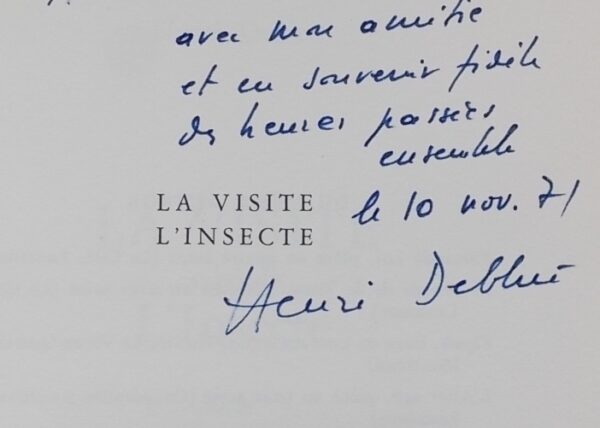 avec mon amitié
et en souvenir fidèle
des heures passées
ensemble
le 10 nov. 71
LA VISITE
L'INSECTE
Henri Debluë